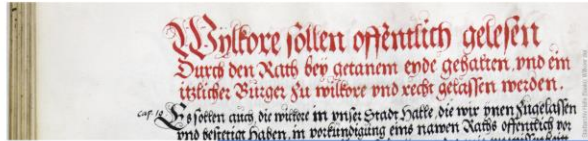 Wylkore sollen offentlich gelesen
Durch den Rath bey getanem eyde gehalten, vnd ein
itzlicher Bürger zu wilkore vnd recht gelassen werden.
cap. Es sollen auch, die wilkore in vnser Stadt Halle, die wir ynen zugelassen
vnd bestetigt haben, in vorkündigung eins nawen Raths offentlich vor